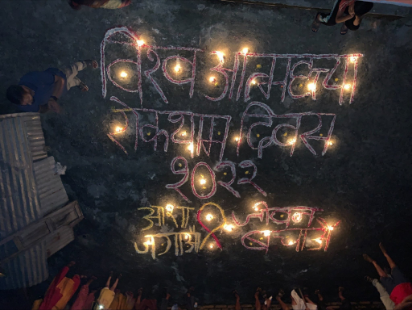 विश्व आत्महत्या
रोकथाम दिवस
२०२२
आशा जीवन
जगाओ बचाओ